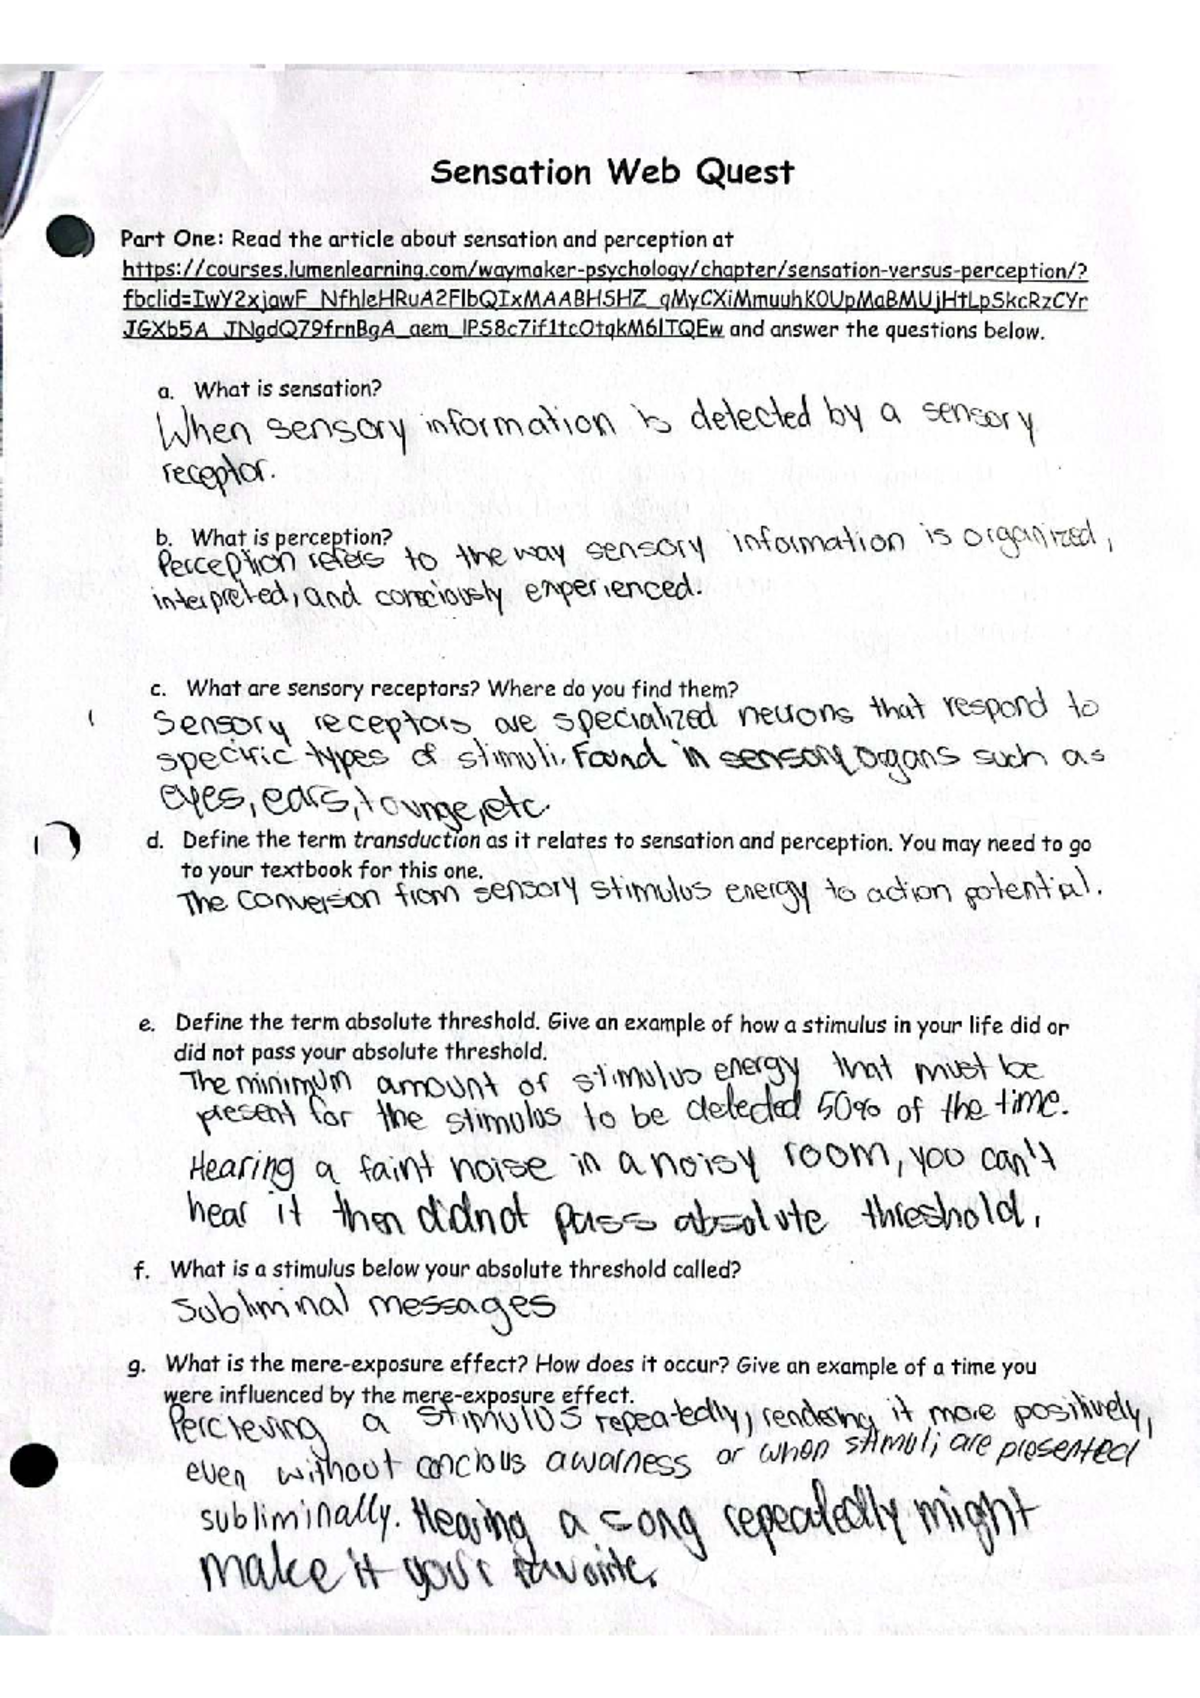 Sensation Web Quest
Part One: Read the article about sensation and perception at
https://courses.lumenlearning.com/waymaker-psychology/chapter/sensation-versus-perception/?
fbclid=IwY2xjawF_NfhleHRuA2FlbQIxMAABHSHZ_qMyCXiMmuuhK0UpMaBMUjHtLpSkcRzCYr
JGXb5A_JNgdQ79frnBgA_aem_lPS8c7if1tcOtqkM6lTQEw and answer the questions below.
a. What is sensation?
When sensory information is detected by a sensory
receptor.
b. What is perception?
Perception refers to the way sensory information is organized,
interpreted, and consciously experienced.
c. What are sensory receptors? Where do you find them?
Sensory receptors are specialized neurons that respond to
specific types of stimuli. Found in sensory organs such as
eyes, ears, tounge, etc.
d. Define the term transduction as it relates to sensation and perception. You may need to go
to your textbook for this one.
The conversion from sensory stimulus energy to action potential.
e. Define the term absolute threshold. Give an example of how a stimulus in your life did or
did not pass your absolute threshold.
The minimum amount of stimulus energy that must be
present for the stimulus to be detected 50% of the time.
Hearing a faint noise in a noisy room, you can't
hear it then did not pass absolute threshold.
f. What is a stimulus below your absolute threshold called?
Subliminal messages
g. What is the mere-exposure effect? How does it occur? Give an example of a time you
were influenced by the mere-exposure effect.
Percieving a stimulus repeatedly, rendering it more positively,
even without concious awarness or when stimuli are presented
subliminally. Hearing a song repeatedly might
make it your favorite.